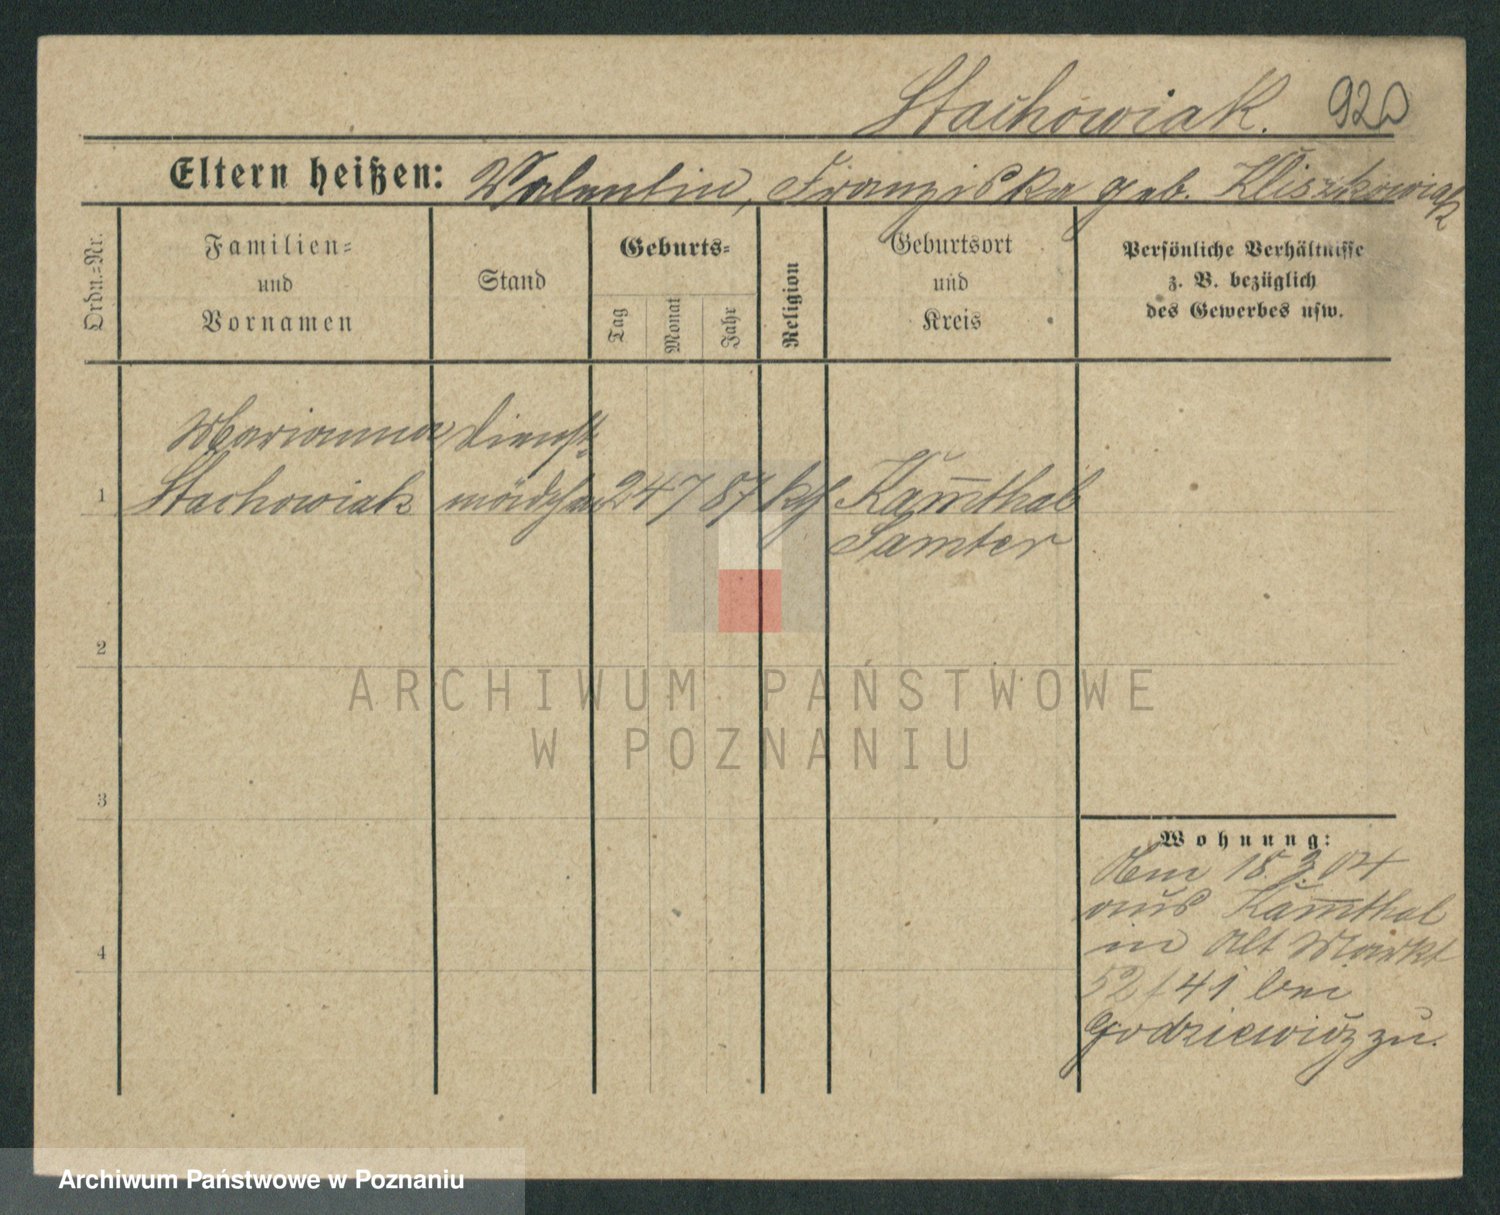 Stachowiak. 920
Eltern heißen: Valentin, Franziska geb. Kliszkowiak
Ordn.-Nr.
Familien-
und
Vornamen
Stand
Geburts-
Tag
Monat
Jahr
Religion
Geburtsort
und
Kreis
Persönliche Verhältnisse
z. B. bezüglich
des Gewerbes usw.
Marianna Dienst-
1 Stachowiak mädchen 24 7 87 kth Kam̅thal
Samter
2
3
4
Wohnung:
Am 18.3.04
aus Kam̅thal
in Alt Markt
52/41 bei
Godziewicz zu.
ARCHIWUM PAŃSTWOWE
W POZNANIU
Archiwum Państwowe w Poznaniu